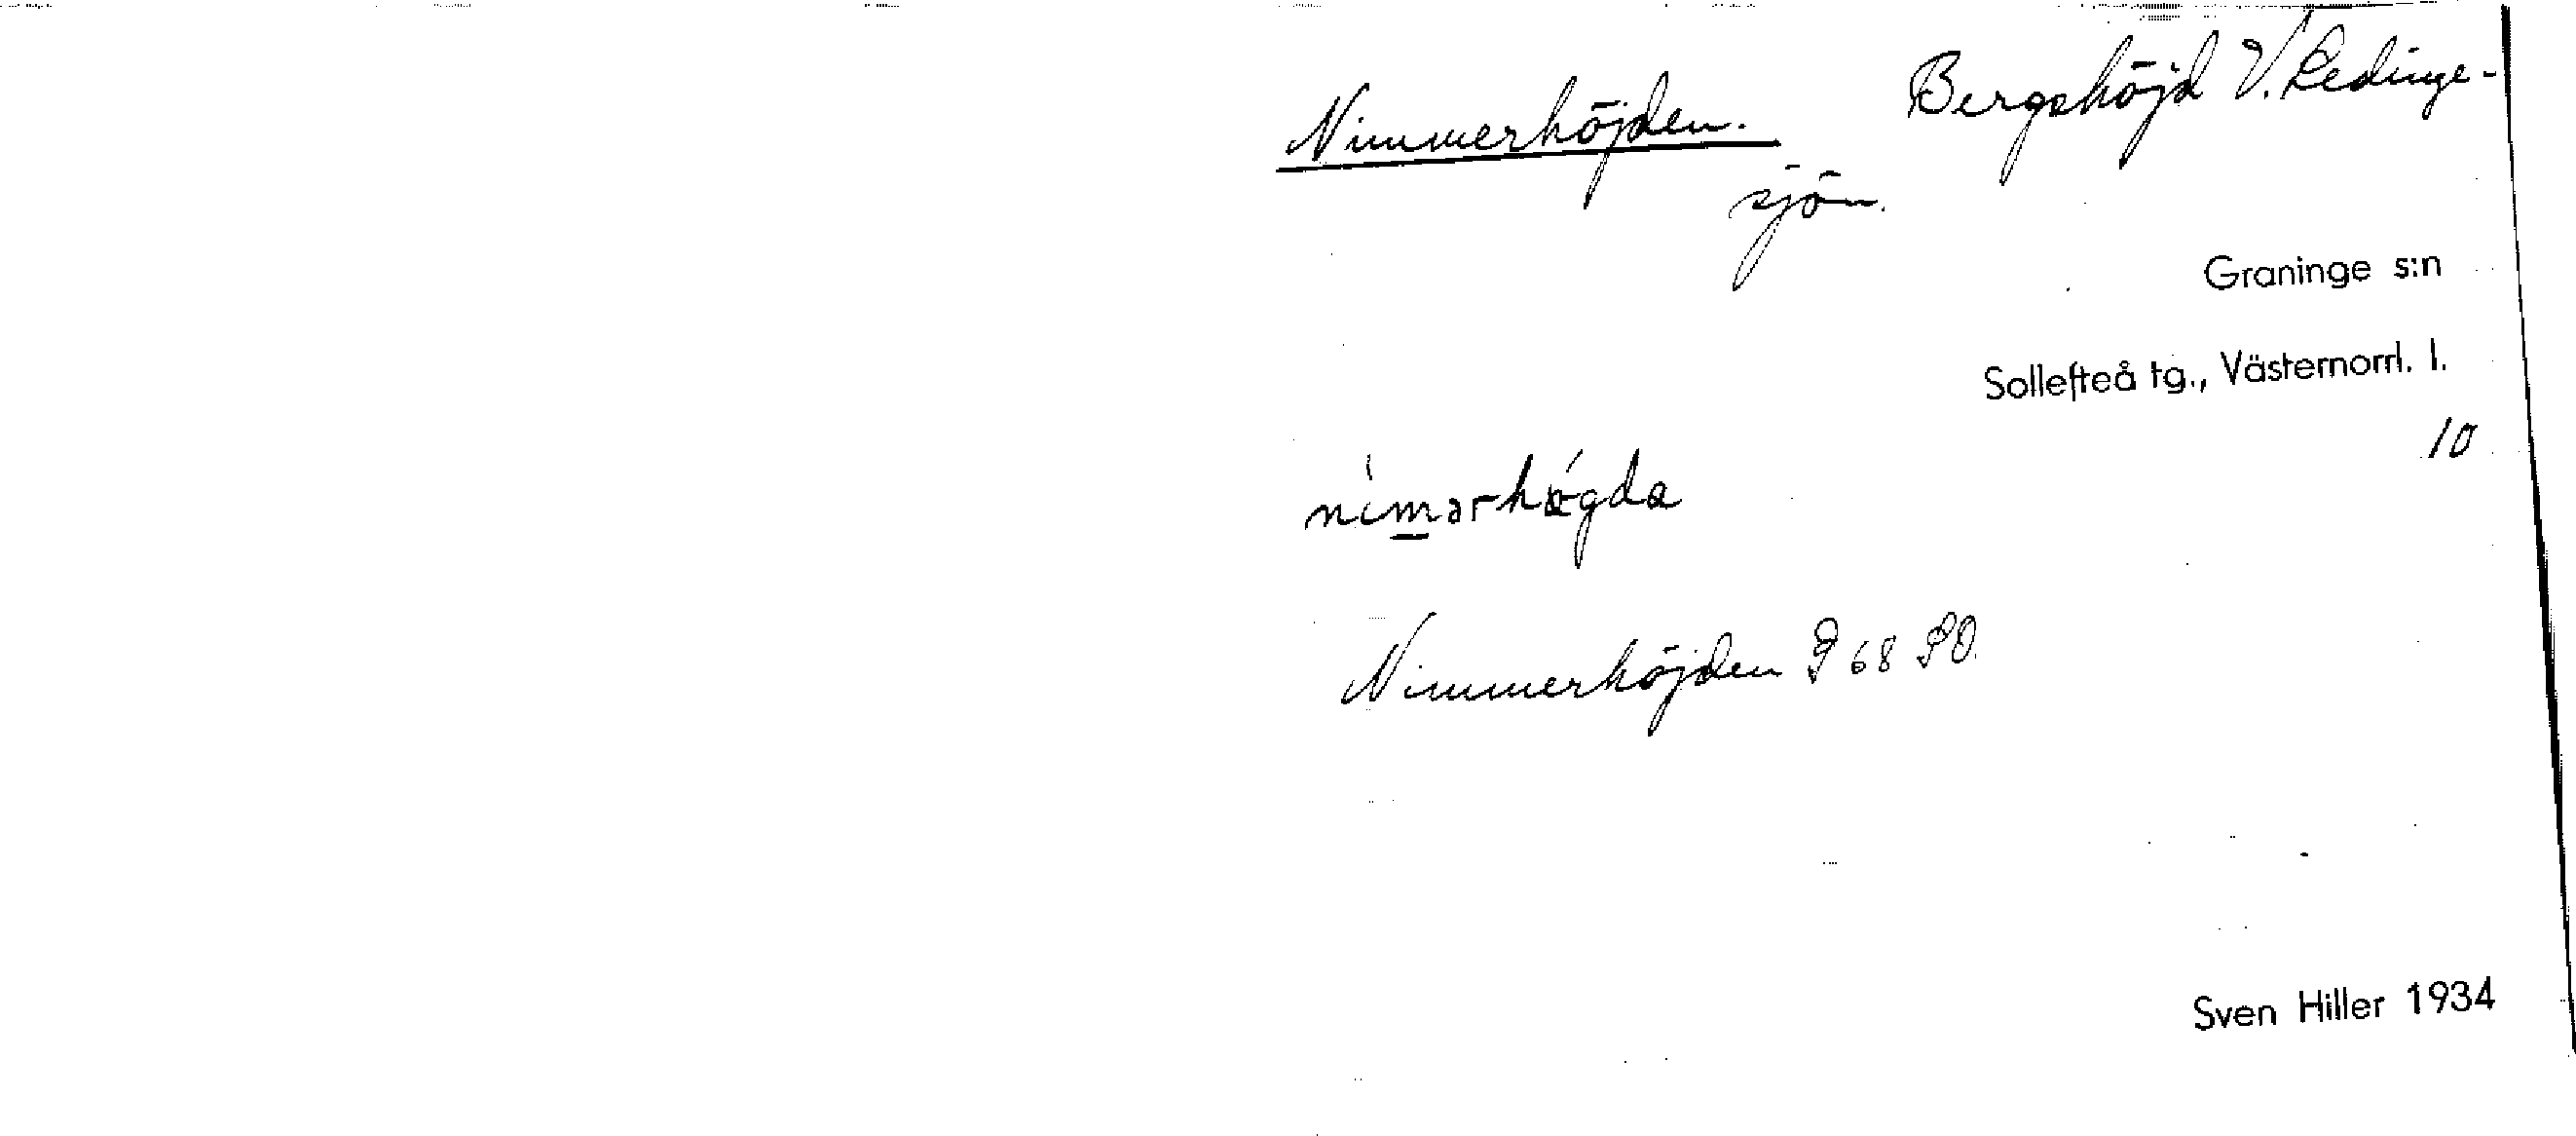 Nimmerhöjden. Bergshöjd V. Ledinge-
sjön.
Graninge s:n
Sollefteå tg., Västernorrl. l.
10
Nimmerhöjden 68 SO.
Sven Hiller 1934